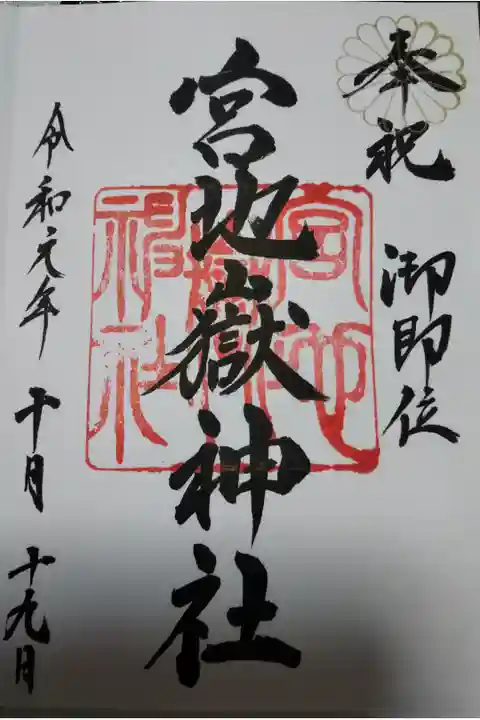 奉祝 御即位
宮地嶽神社
宮地嶽神社
令和元年 十月 十九日